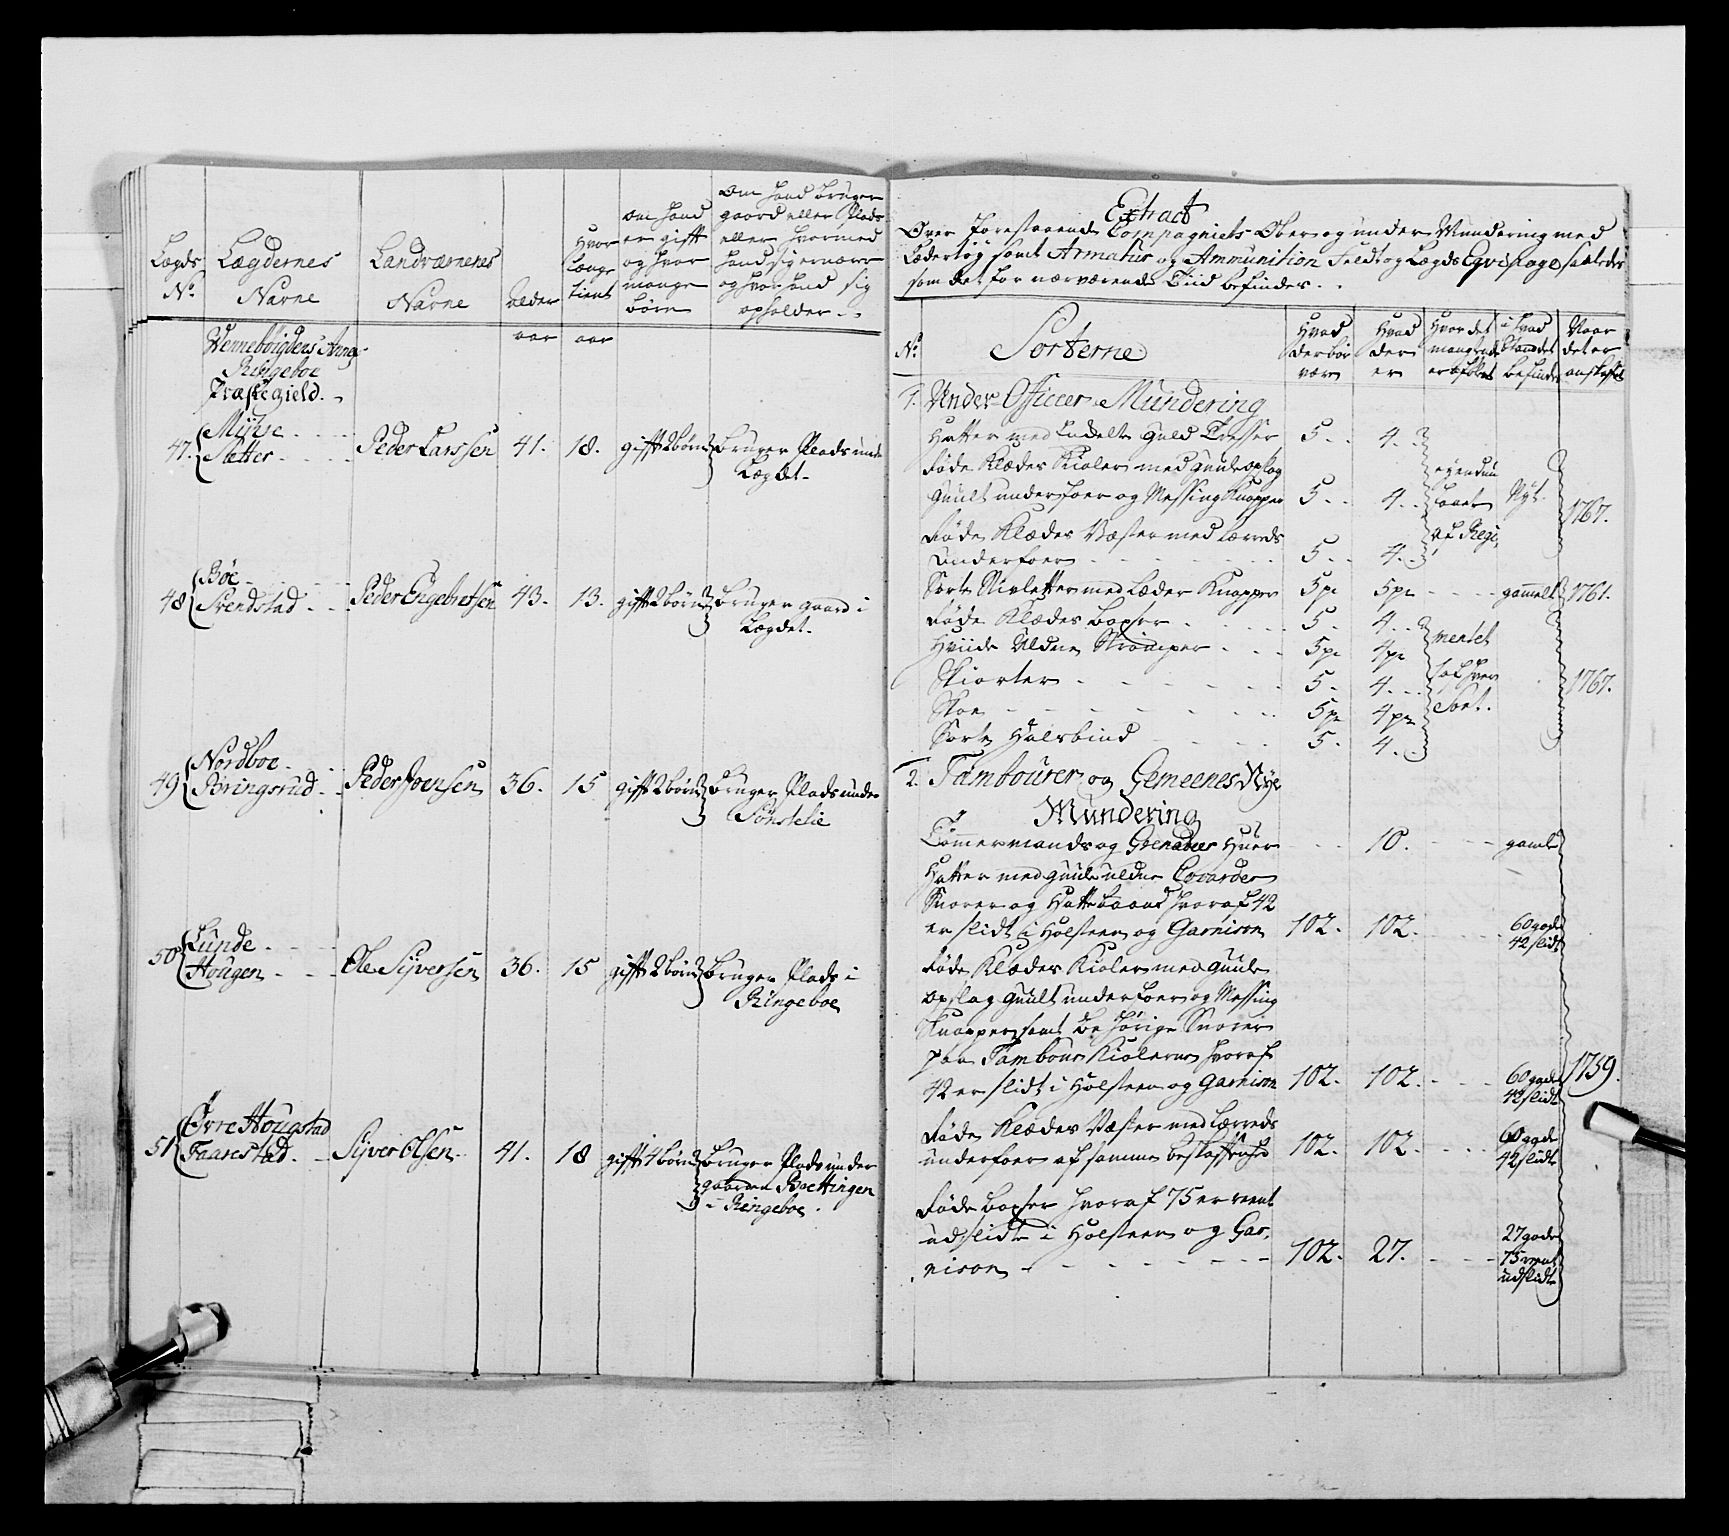 Lægds
No.
Lægdernes
Navne
Landværnenes
Navne
Alder
Hvor
længe
tient
om hand
er gift
og hvor
mange
børn
Om hand bruger
gaard eller Plads
eller hvormed
hand sig ernærer
og hvor hand sig
opholder
aar aar
Vennebøigdens Annex
Ringeboe
Præstegield.
47. Myhre
Sætter
Peder Larssen 41. 18. gift 2 børn bruger Plads under
Lægdet.
48 Bøe
Svendstad
Peder Engebretsen 43. 13. gift 2 børn bruger gaard i
Lægdet.
49 Nordboe
Børingsrud
Peder Joensen 36. 15 gift 2 børn bruger Plads under
Sønstelie
50 Lunde
Hougen
Ole Sÿversen 36. 15 gift 2 børn bruger Plads i
Ringeboe
51 Øvre Hougstad
Faarestad.
Sÿver Olsen 41. 18 gift 4 børn bruger Plads under
gaarden Boettingen
i Ringeboe.
Extract
Over forestaaende Compagniets Over og under Mundering med
Lædertøy samt Armatur og Ammunition Feldt og Lægds Eqvipage, saaledes
som det for nærværende Tiid befindes.
No.
Sorterne
Hvad
der bør
være
Hvad
der
er
Hvor det
manglende
er afblevet
i hvad
Stand det
befindes
Naar
det er
anskaffet
1. Under Officeer Mundering
Hatter med Guld Tresser 5. 4.
Røde Klædes Kioler med guule opslag
guult underfoer og Messing Knapper 5. 4. Nyt. 1767.
Røde Klædes Vester med Lærreds
Underfoer 5. 4. af Regi
Sorte Stivletter med Læder Knapper 5 pr 5 pr gammelt 1761.
Røde Klædes Boxer 5. 4.
Hviide Uldne Strømper 5 pr 4 pr mentet
Skiorter 5. 4. 1767.
Skoe 5 pr 4 pr
Sorte Halsbind 5. 4.
2. Tambourer og Gemeenes Nye
Mundering
Tømmermands og Grenadeer Huer 10. gamle
Hatter med guule uldne Cocarder
Snorer og Hatte baand hvoraf 42
er slidt i Holsteen og Garnison 102. 102. 60 gode
42 slidt
Røde Klædes Kioler med guule
opslag guult underfoer og Messing
Knapper, samt behørige Snorer
paa Tambour Kiolerne hvoraf
42 er slidt i Holsteen og Garnison 102. 102. 60 gode
42 slidt 1759.
Røde Klædes Vester med Lærreds
underfoer af samme beskaffenhed 102. 102. 60 gode
42 slidt
Røde boxer hvoraf 75 er reent
udslidte i Holsteen og Gar-
nison 102. 27. 27 gode
75 reent
udslidte